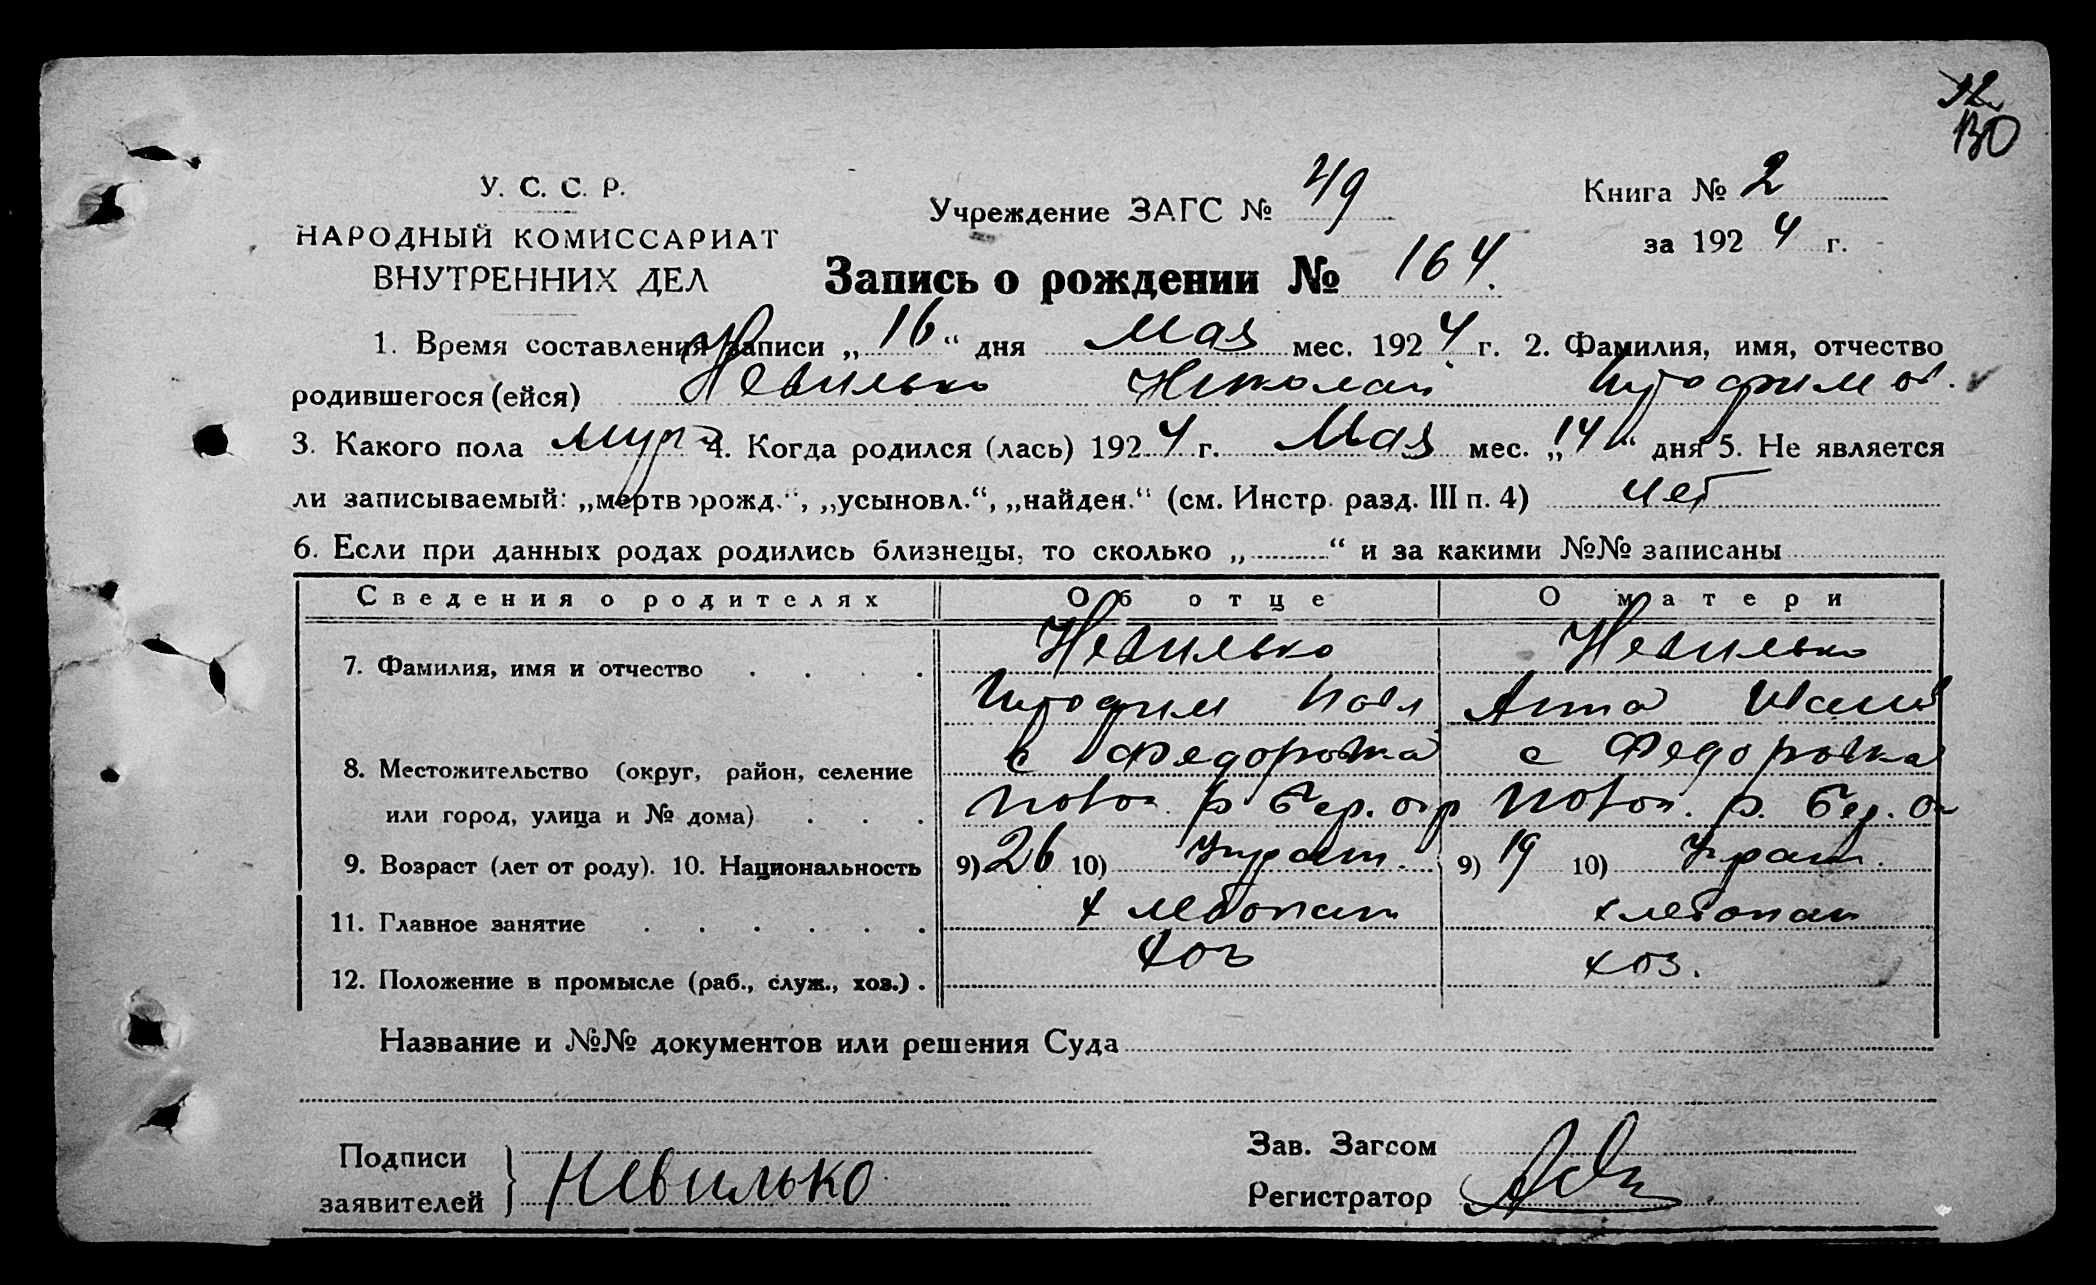 130
У. С. С. Р.
НАРОДНЫЙ КОМИССАРИАТ
ВНУТРЕННИХ ДЕЛ
Учреждение ЗАГС № 49
Книга № 2
за 1924 г.
Запись о рождении № 164.
1. Время составления записи „16“ дня Мая мес. 1924 г. 2. Фамилия, имя, отчество
родившегося (ейся) Невилько Николай Трофимов.
3. Какого пола муж 4. Когда родился (лась) 1924 г. Мая мес. „14“ дня 5. Не является
ли записываемый: „мертворожд.“, „усыновл.“, „найден.“ (см. Инстр. разд. III п. 4) нет
6. Если при данных родах родились близнецы, то сколько „ “ и за какими №№ записаны
Сведения о родителях Об отце О матери
7. Фамилия, имя и отчество Невилько Невилько
Трофим Павл Анна
8. Местожительство (округ, район, селение с Федоровка с Федоровка
или город, улица и № дома) р Бер. окр р. Бер. Ок
9. Возраст (лет от роду). 10. Национальность 9) 26 10) Украин. 9) 19 10) Украин.
11. Главное занятие хлебопаш хлебопаш
12. Положение в промысле (раб., служ., хоз.) хоз хоз.
Название и №№ документов или решения Суда
Подписи
заявителей } Невилько
Зав. Загсом
Регистратор